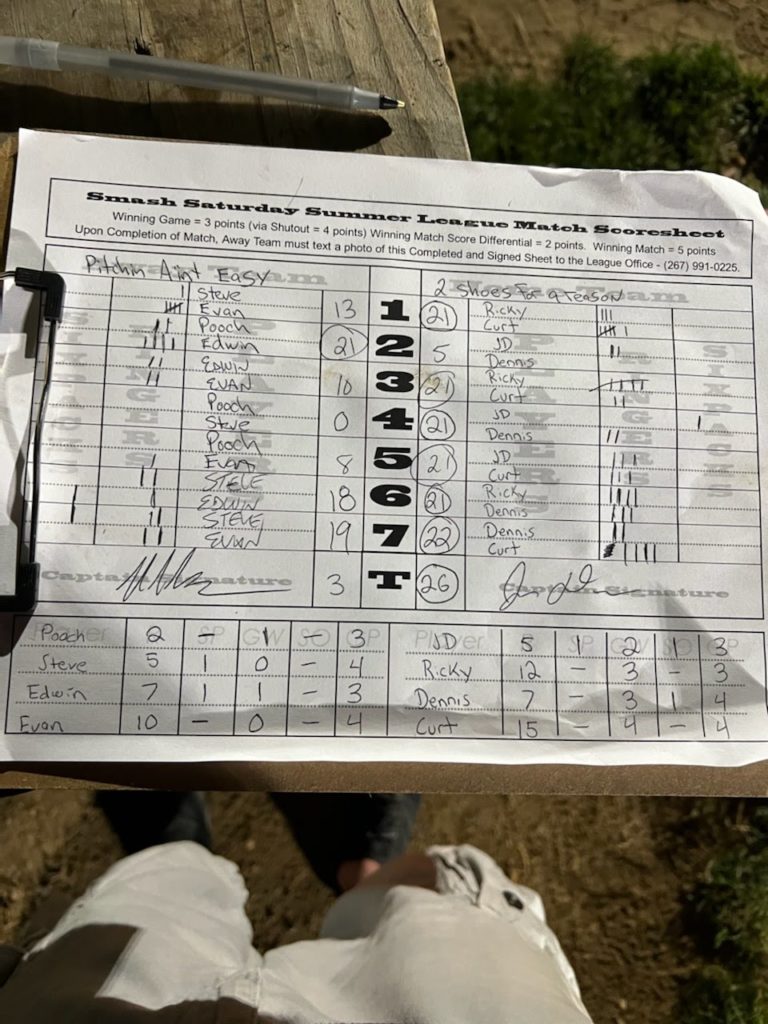 Smash Saturday Summer League Match Scoresheet
Winning Game = 3 points (via Shutout = 4 points) Winning Match Score Differential = 2 points. Winning Match = 5 points
Upon Completion of Match, Away Team must text a photo of this Completed and Signed Sheet to the League Office - (267) 991-0225.
Pitchin Ain't Easy 2 Shoes for a reason
Steve Ricky
Evan 13 1 21 Curt
Pooch JD
Edwin 21 2 5 Dennis
EDWIN Ricky
EVAN 10 3 21 Curt
Pooch JD
Steve 0 4 21 Dennis
Pooch JD
Evan 8 5 21 Curt
STEVE Ricky
EDWIN 18 6 21 Dennis
STEVE Dennis
EVAN 19 7 22 Curt
Captain Signature 3 T 26 Captain Signature
Pooch 2 - 1 - 3 JD 5 1 2 1 3
Steve 5 1 0 - 4 Ricky 12 - 3 - 3
Edwin 7 1 1 - 3 Dennis 7 - 3 1 4
Evan 10 - 0 - 4 Curt 15 - 4 - 4